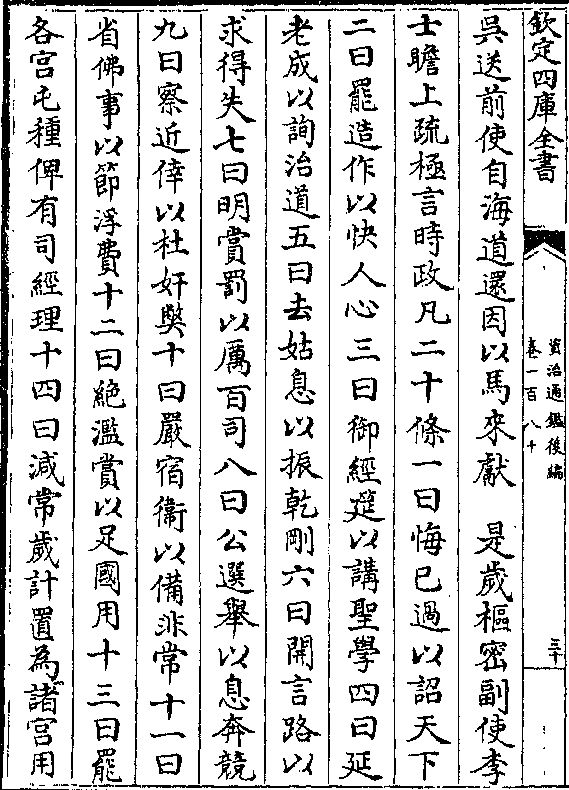 欽定四庫全書
資治通鑑後編
卷一百八十
三十
吳送前使自海道還因以馬來獻　是歲樞密副使李
士瞻上疏極言時政凡二十條一曰悔已過以詔天下
二曰罷造作以快人心三曰御經筵以講聖學四曰延
老成以詢治道五曰去姑息以振乾剛六曰開言路以
求得失七曰明賞罰以厲百司八曰公選舉以息奔競
九曰察近倖以杜奸弊十曰嚴宿衞以備非常十一曰
省佛事以節浮費十二曰絶濫賞以足國用十三曰罷
各宮屯種俾有司經理十四曰減常歲計置為諸宮用